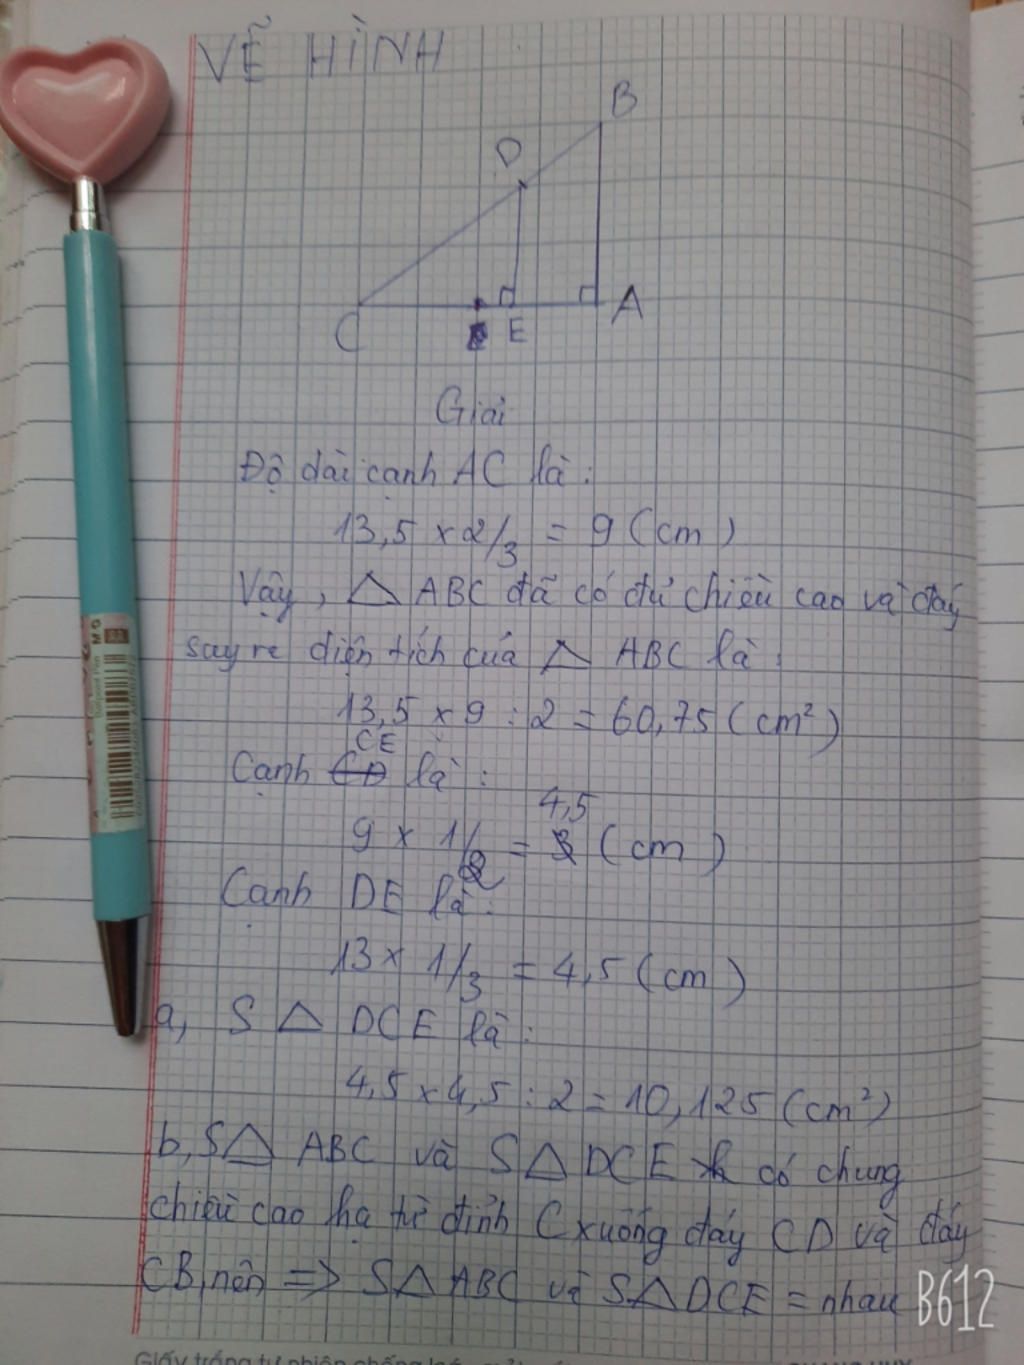 VẼ HÌNH
B
D
C
E
A
Giải
Độ dài cạnh AC là:
13,5 x 2/3 = 9 (cm)
Vậy, △ ABC đã có đủ chiều cao và đáy
suy re diện tích của △ ABC là:
13,5 x 9 : 2 = 60,75 (cm²)
Cạnh CE là:
9 x 1/2 = 4,5 (cm)
Cạnh DE là:
13 x 1/3 = 4,5 (cm)
a, S △ DCE là:
4,5 x 4,5 : 2 = 10,125 (cm²)
b, S△ ABC và S△ DCE có chung
chiều cao hạ từ đỉnh C xuống đáy CD và đáy
CB, nên => S△ ABC và S△DCE = nhau
B612